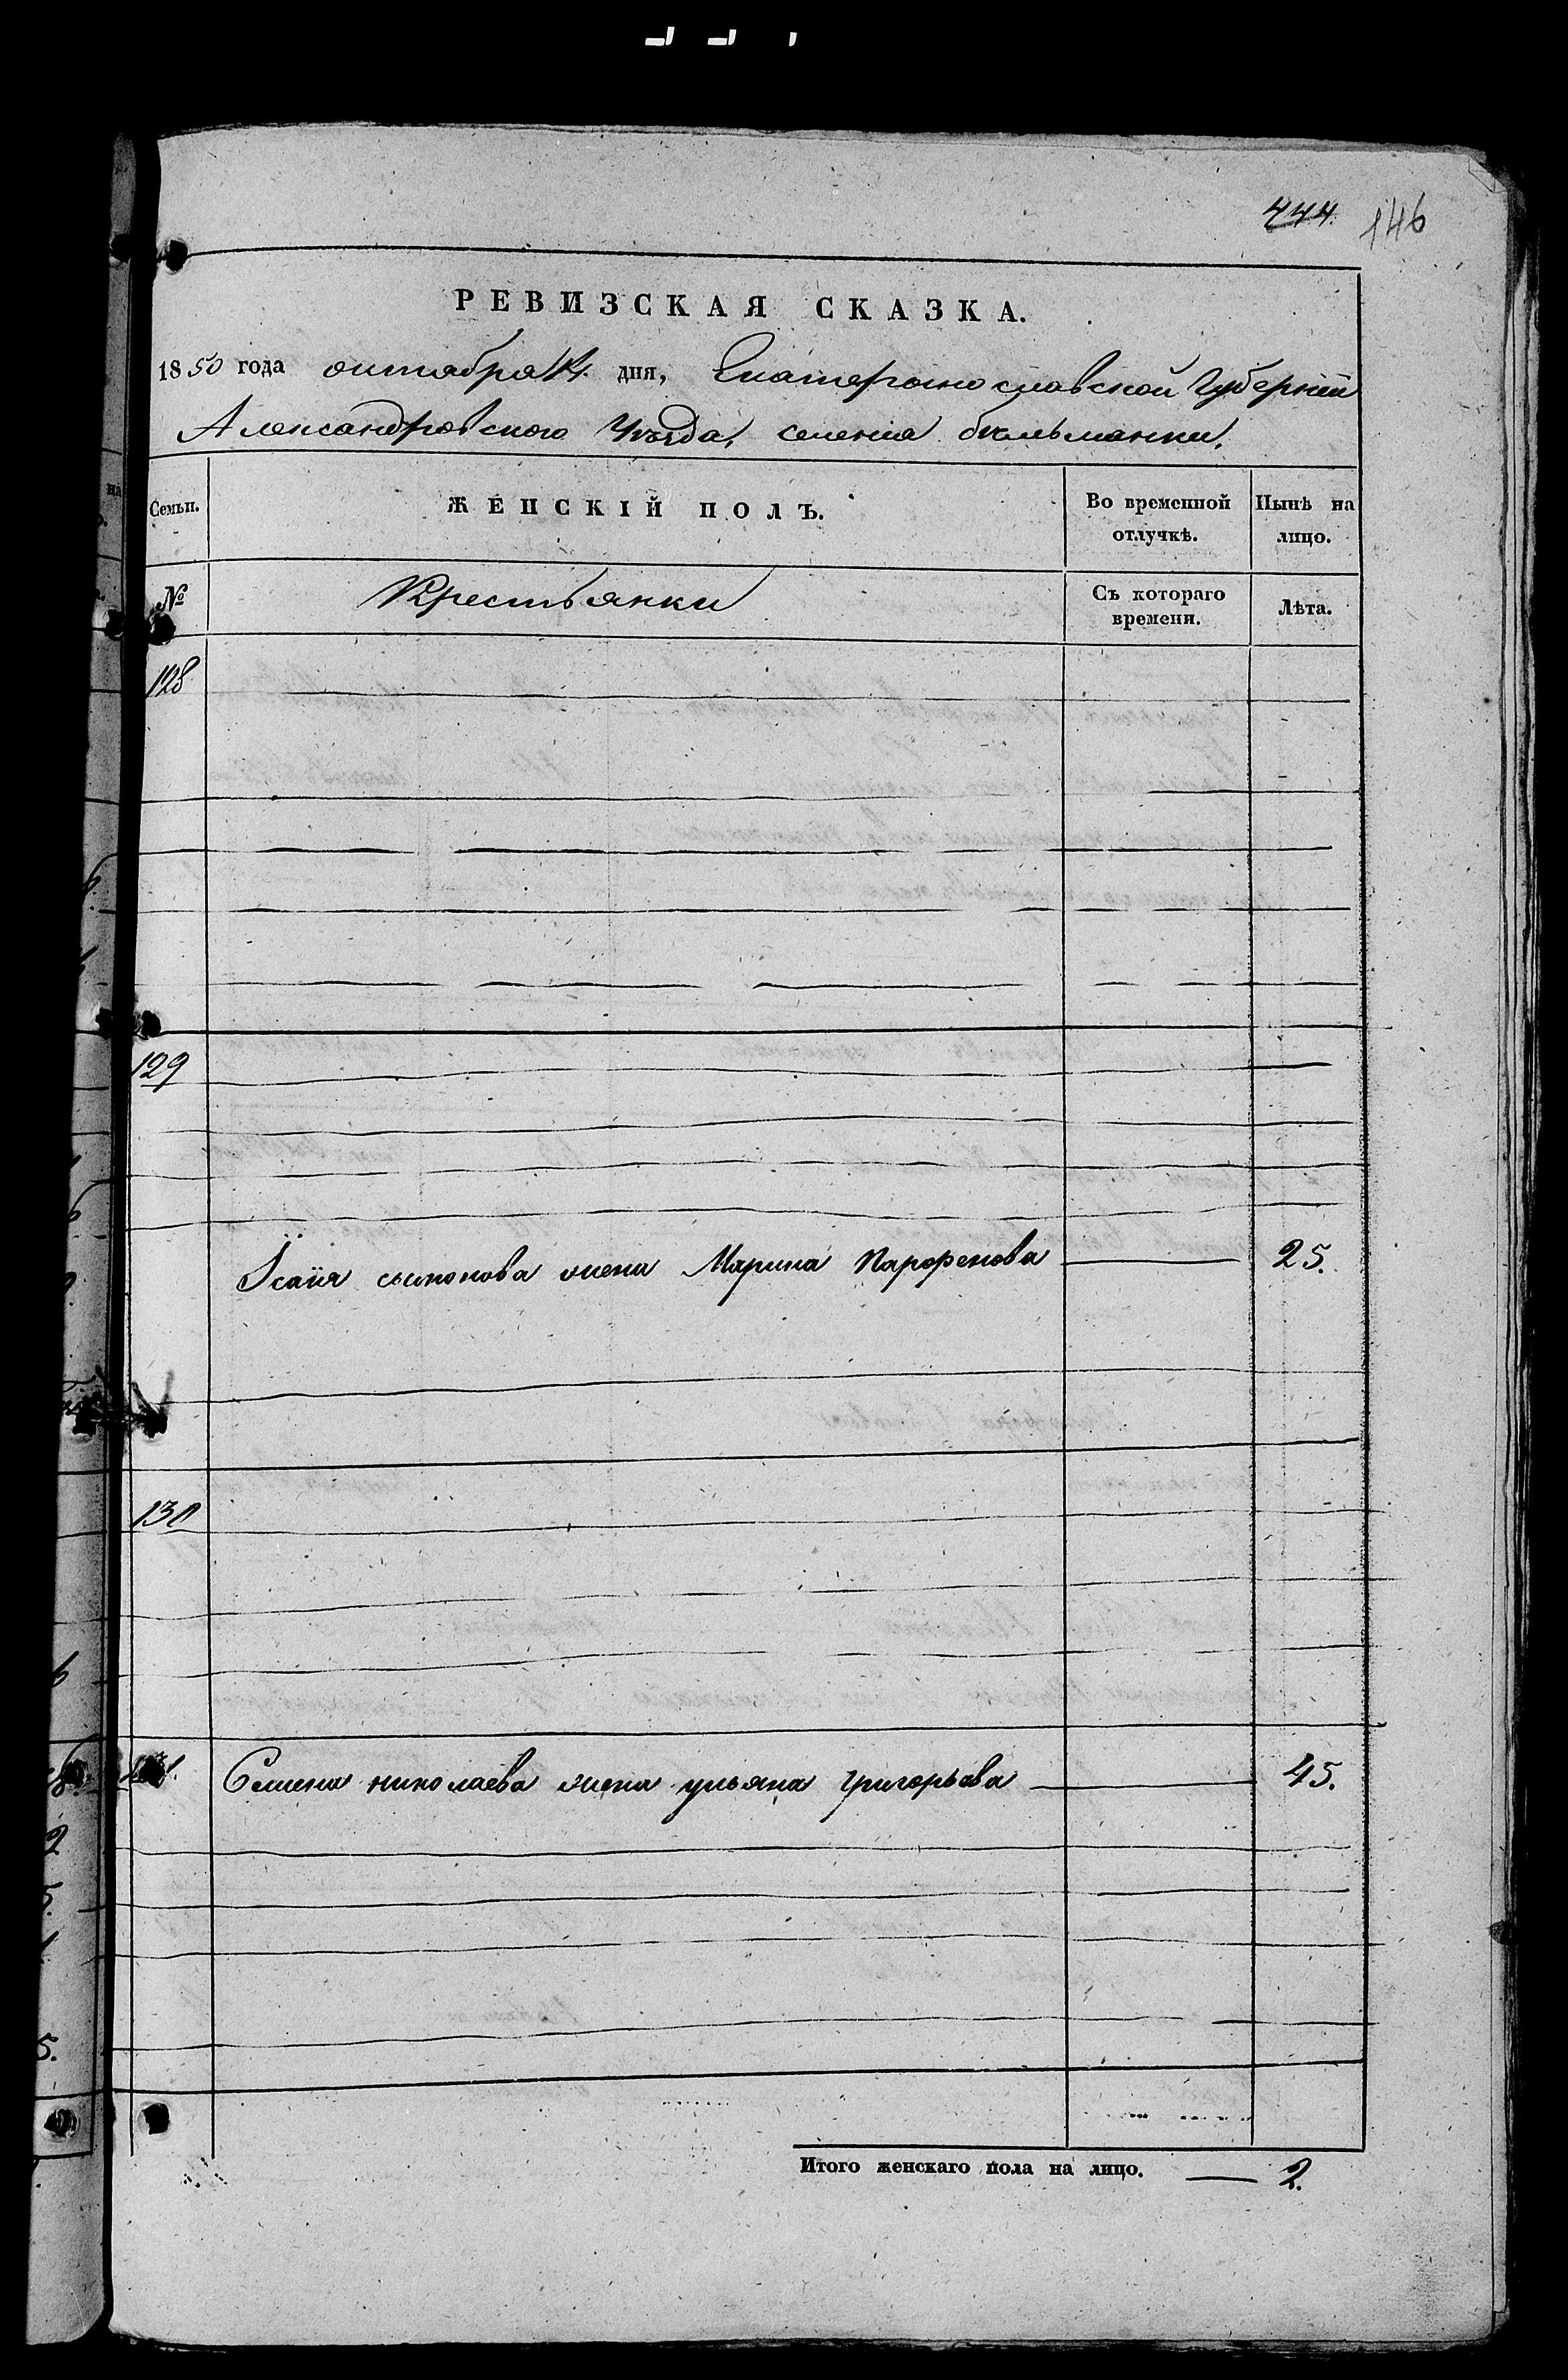 444. 146
РЕВИЗСКАЯ СКАЗКА.
1850 года октября 14. дня, Екатеринославской Губерніи
Александровского Уѣзда, селенія бѣльманки,
Семьи. ЖЕНСКІЙ ПОЛЪ. Во временной отлучкѣ. Нынѣ на лицо.
№ Крестьянки Съ котораго времени. Лѣта.
128
129
Ісаія симонова жена Марина Парфенова 25.
130
131. Семена николаева жена ульяна григорьева 45.
Итого женскаго пола на лицо. 2.